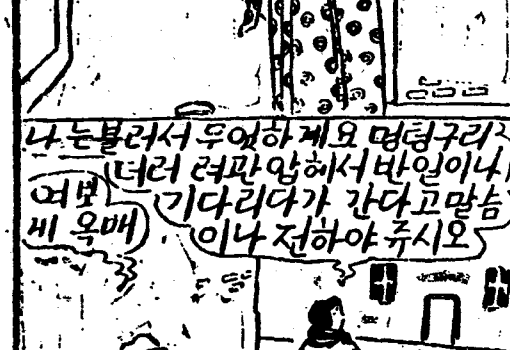 나는 불러서 무엇하게요 멍텅구리
더러 려관 압헤서 반일이나
기다리다가 간다고 말슴
이나 전하야 쥬시오
여보
게 옥매